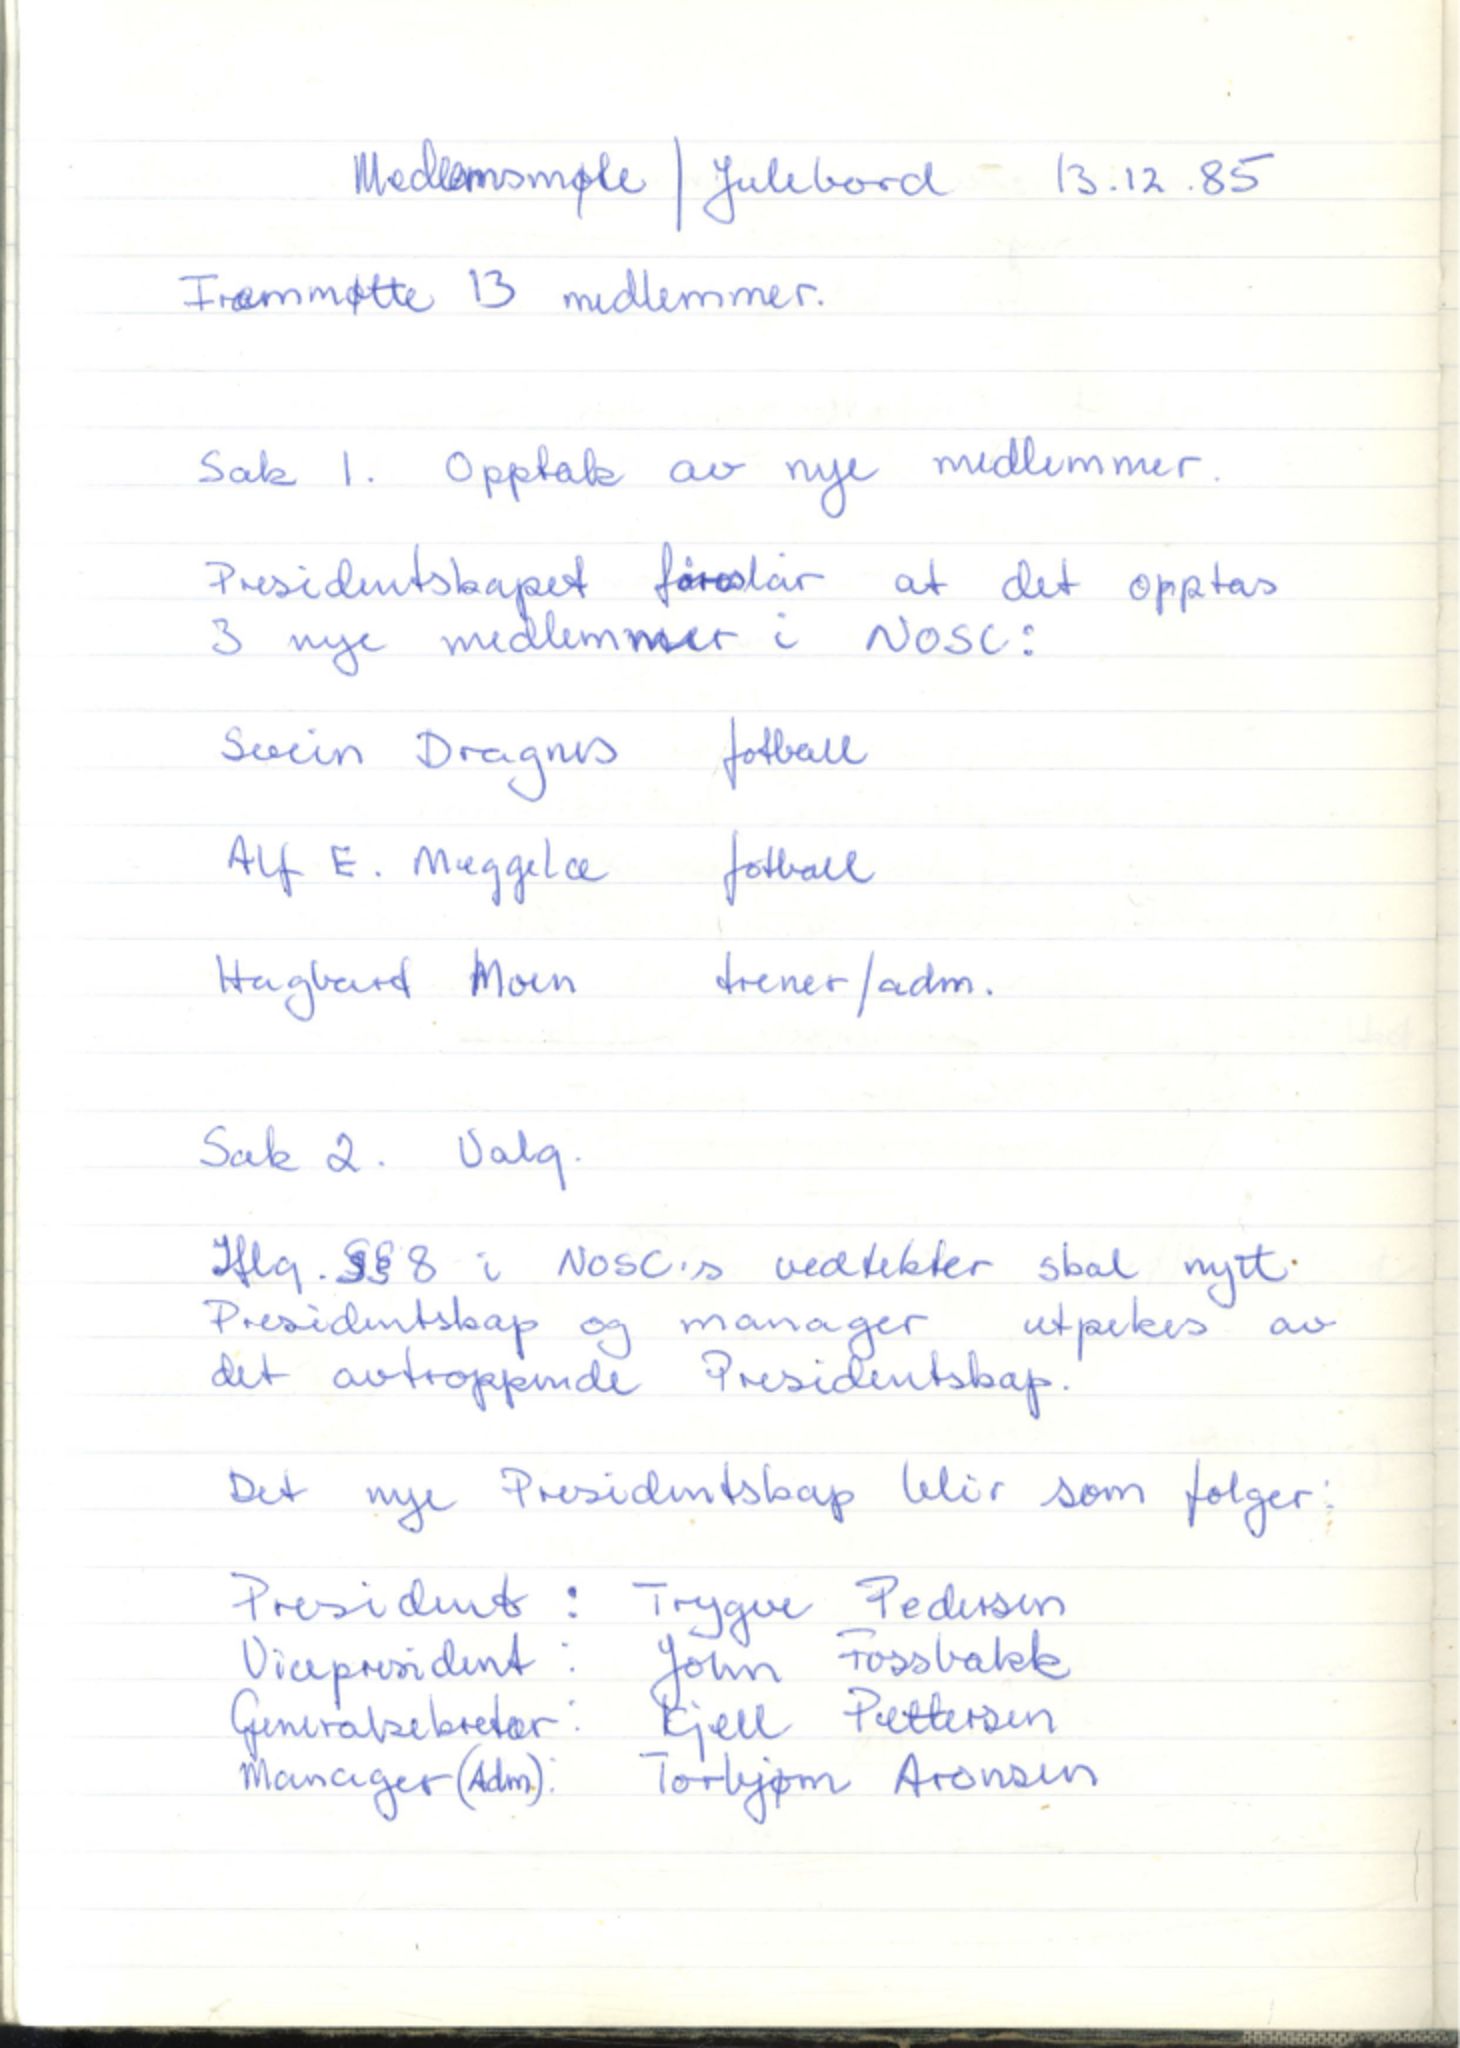 Medlemsmøte / Julebord 13.12.85
Frammøtte 13 medlemmer.
Sak 1. Opptak av nye medlemmer.
Presidentskapet föreslår at det opptas
3 nye medlemmer i NOSC:
Svein Dragnes fotball
Alf E. Muggela fotball
Hagbart Moen trener/adm.
Sak 2. Valg.
Iflg. §§ 8 i NOSC's vedtekter skal nytt
Presidentskap og manager utpekes av
det avtroppende Presidentskap.
Det nye Presidentskap blir som følger:
President : Trygve Pedersen
Vicepresident : John Fossbakk
Generalsekretær : Kjell Pettersen
Manager (Adm) : Torbjørn Aronsen